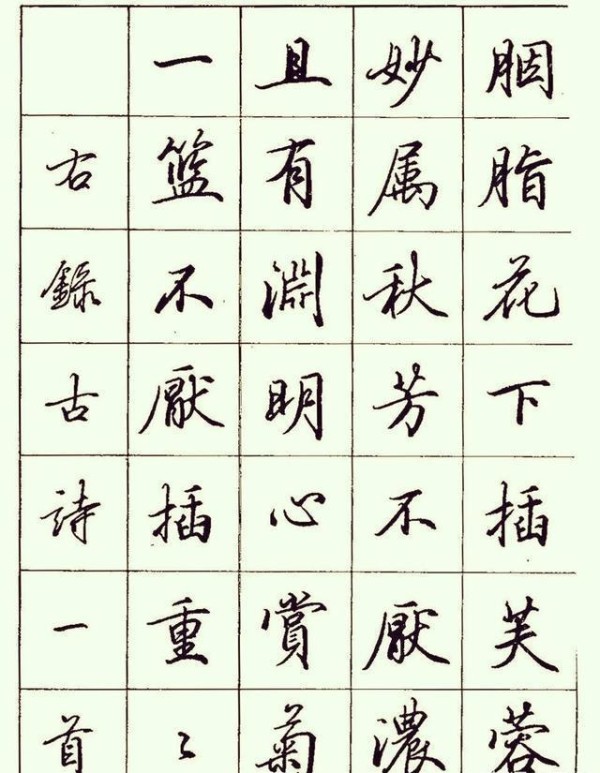 胭脂花下插芙蓉
妙属秋芳不厭濃
且有淵明心賞菊
一籃不厭插重〻
右錄古詩一首